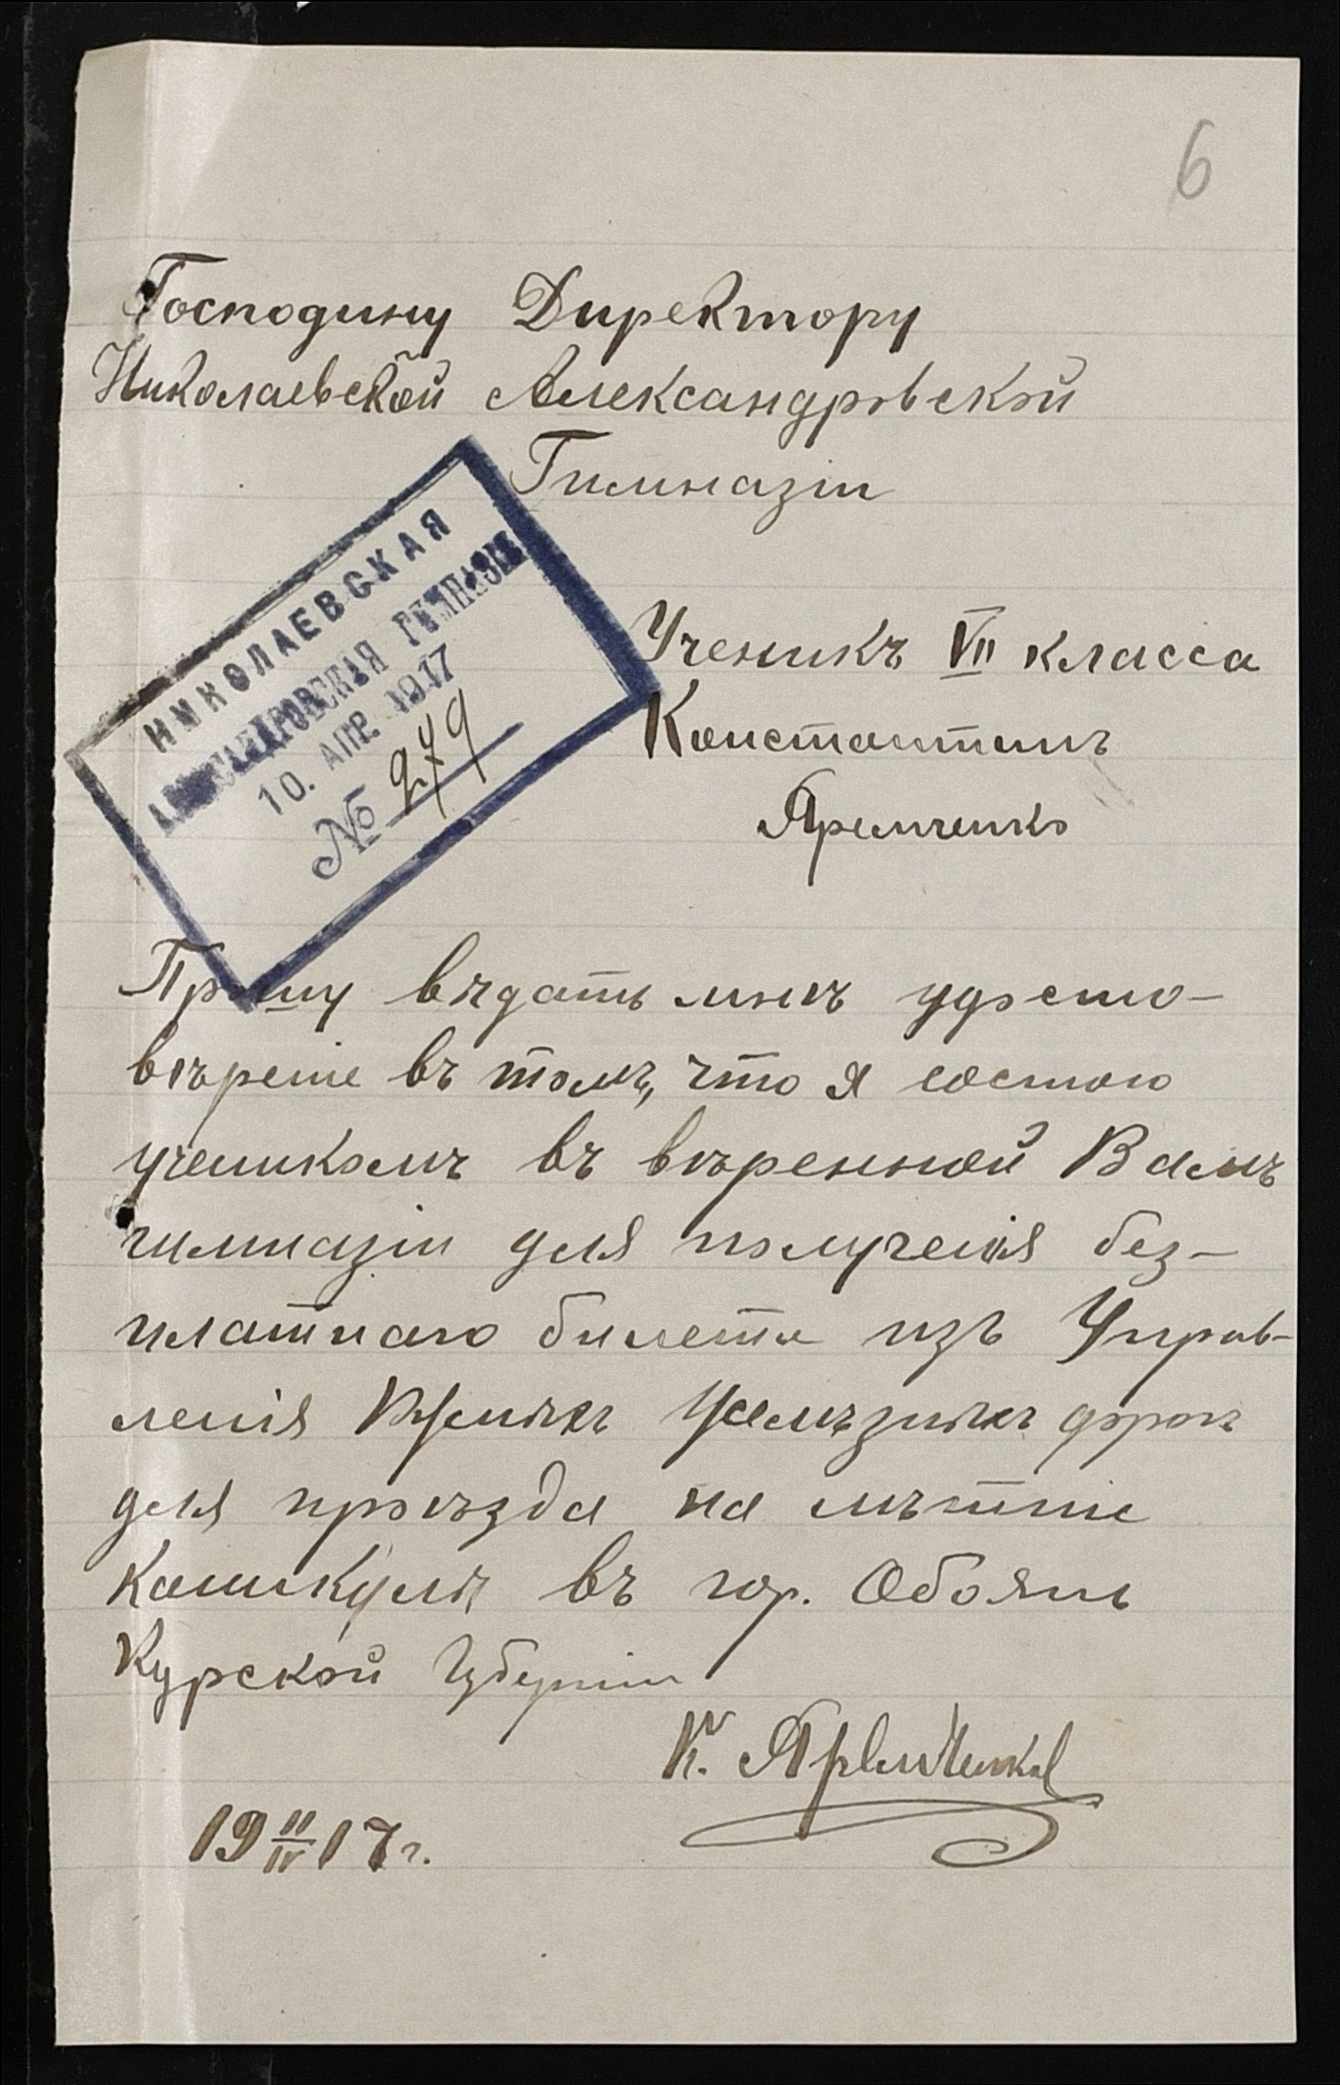 6
Господину Директору
Николаевской Александровской
Гимназіи
НИКОЛАЕВСКАЯ
АЛЕКСАНДРОВСКАЯ ГИМНАЗІЯ
10. АПР. 1917
№ 279
Ученикъ VII класса
Константинъ
Яремченко
Прошу выдать мнѣ удосто-
вѣреніе въ томъ, что я состою
ученикомъ въ ввѣренной Вамъ
гимназіи для полученія без-
платнаго билета изъ Управ-
ленія Южныхъ Желѣзныхъ дорогъ
для проѣзда на лѣтніе
каникулы въ гор. Обоянь
Курской Губерніи
К. Яремченко
19 II/IV 17 г.